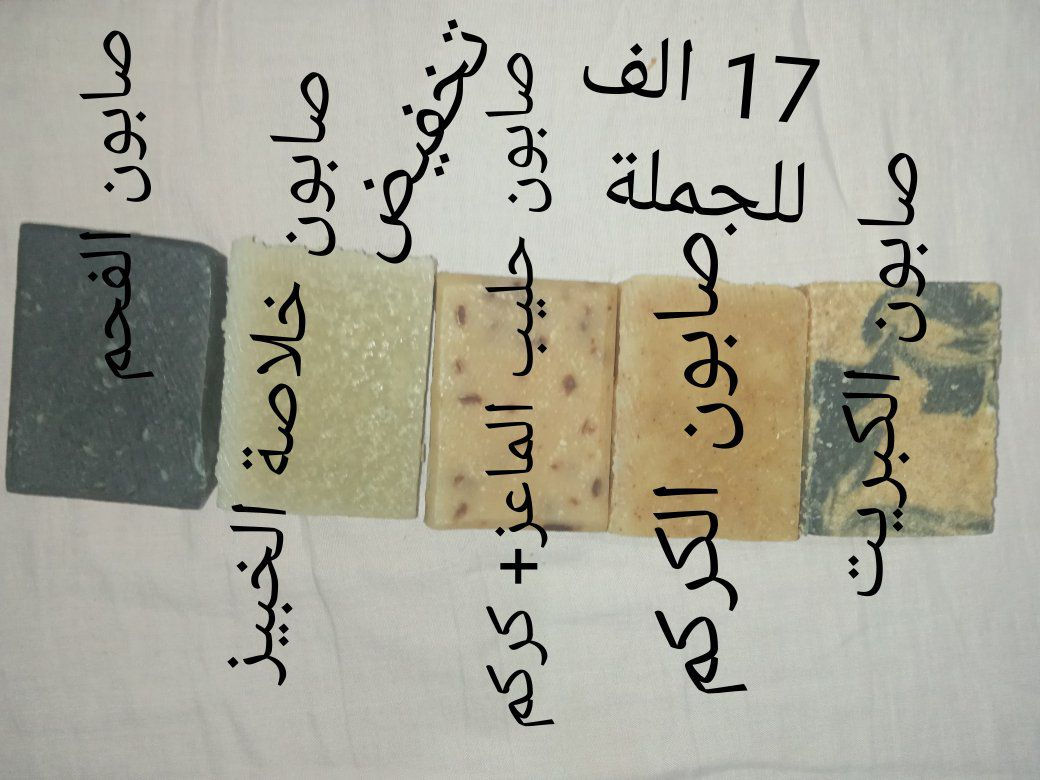 17 الف
للجملة
تخفيض
صابون الكبريت
صابون الكركم
صابون حليب الماعز+ كركم
صابون خلاصة الخبيز
صابون الفحم